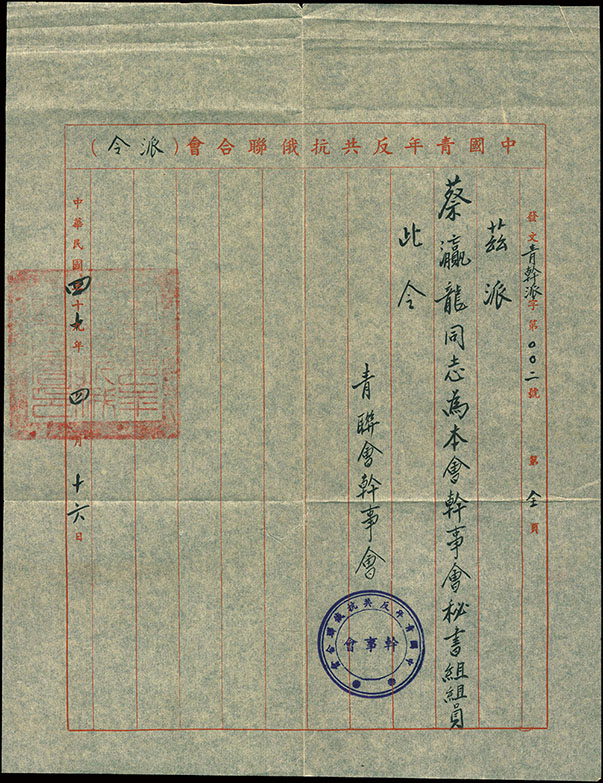 中國青年反共抗俄聯合會（派令）
發文青幹派字第００二號　第全頁
茲派
蔡瀛龍同志為本會幹事會秘書組組員
此令
青聯會幹事會
中國青年反共抗俄聯合會
幹事會
中華民國四十年四月十六日